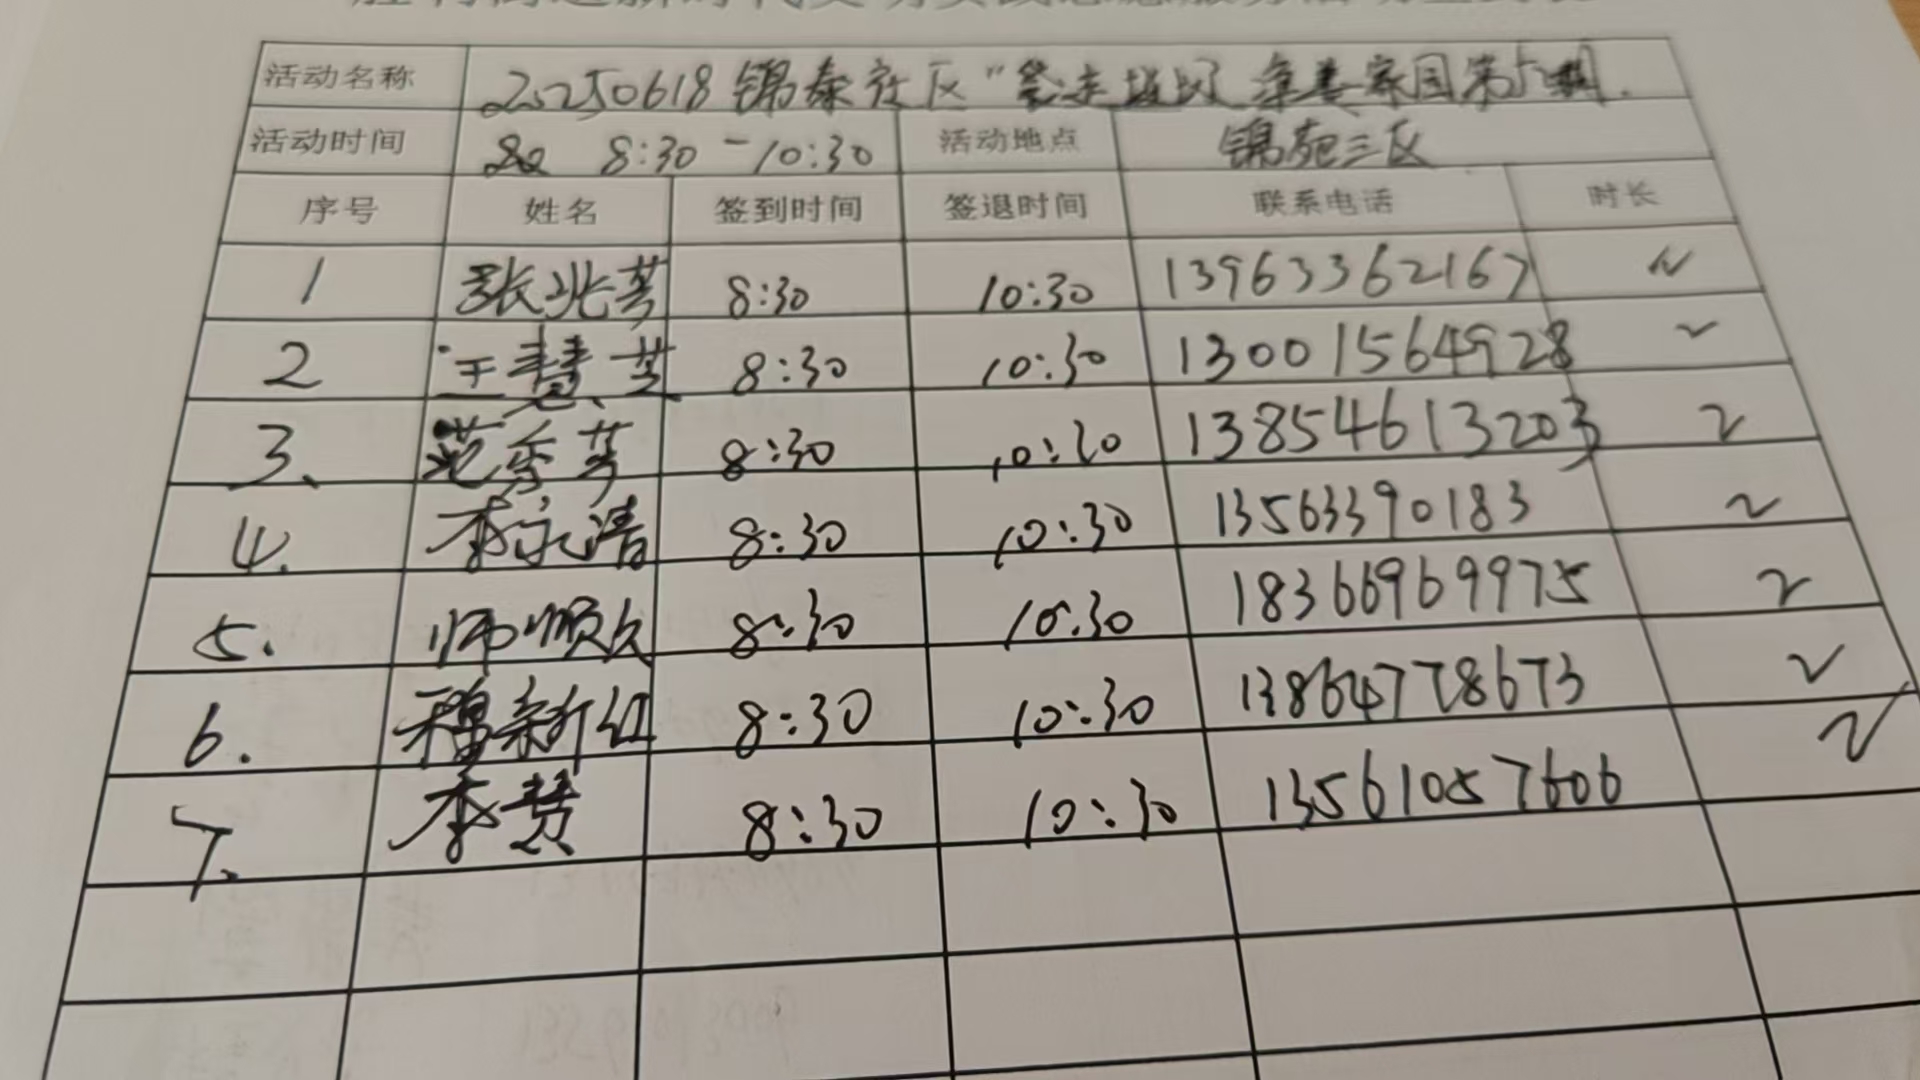 活动名称 20250618锦泰社区“ 家园第5期.
活动时间 8:30-10:30 活动地点 锦苑三区
序号 姓名 签到时间 签退时间 联系电话 时长
1 张兆芳 8:30 10:30 13963362167 2
2 王慧芳 8:30 10:30 13001564928 2
3. 范秀芳 8:30 10:30 13854613203 2
4. 李永清 8:30 10:30 13563390183 2
5. 师顺久 8:30 10:30 18366969975 2
6. 穆新红 8:30 10:30 13864778673 2
7. 李赞 8:30 10:30 13561057606 2